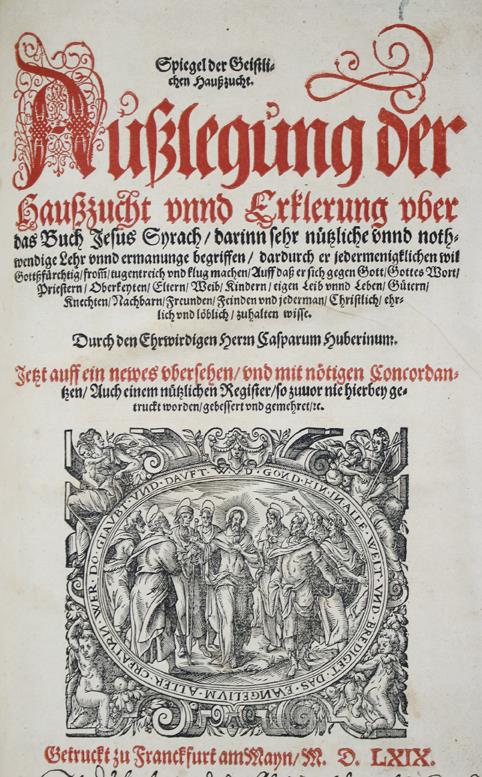 Spiegel der Geistli-
chen Haußzucht.
Außlegung der
Haußzucht vnnd Erklerung vber
das Buch Jesus Syrach / darinn sehr nützliche vnnd noth-
wendige Lehr vnnd ermanunge begriffen / dardurch er jedermenigklichen wil
Gottsfürchtig / from̃ / tugentreich vnd klug machen / Auff daß er sich gegen Gott / Gottes Wort /
Priestern / Oberkeyten / Eltern / Weib / Kindern / eigen Leib vnnd Leben / Gütern /
Knechten / Nachbarn / Freunden / Feinden vnd jederman / Christlich / ehr-
lich vnd löblich / zuhalten wisse.
Durch den Ehrwirdigen Herrn Casparum Huberinum.
Jetzt auff ein newes vbersehen / vnd mit nötigen Concordan-
tzen / Auch einem nützlichen Register / so zuuor nie hierbey ge-
truckt worden / gebessert vnd gemehret / ꝛc.
GOND HIN IN ALLE WELT VND BREDIGET DAS EVANGELIVM ALLER CREATVRN WER DO GLAVBT VND DAVFT
Getruckt zu Franckfurt am Mayn / M. D. LXIX.